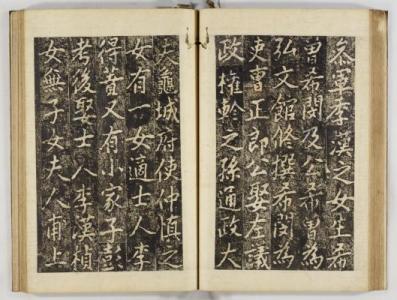 叅軍李漢之女生希
曽希閔及公希曽為
弘文館修撰希閔為
吏曹正郎公娶左議
政權軫之孫通政大
夫龜城府使仲慎之
女有一女適士人李
得蕡又有小家子彭
考後娶士人李漢楨
女無子女夫人甫上